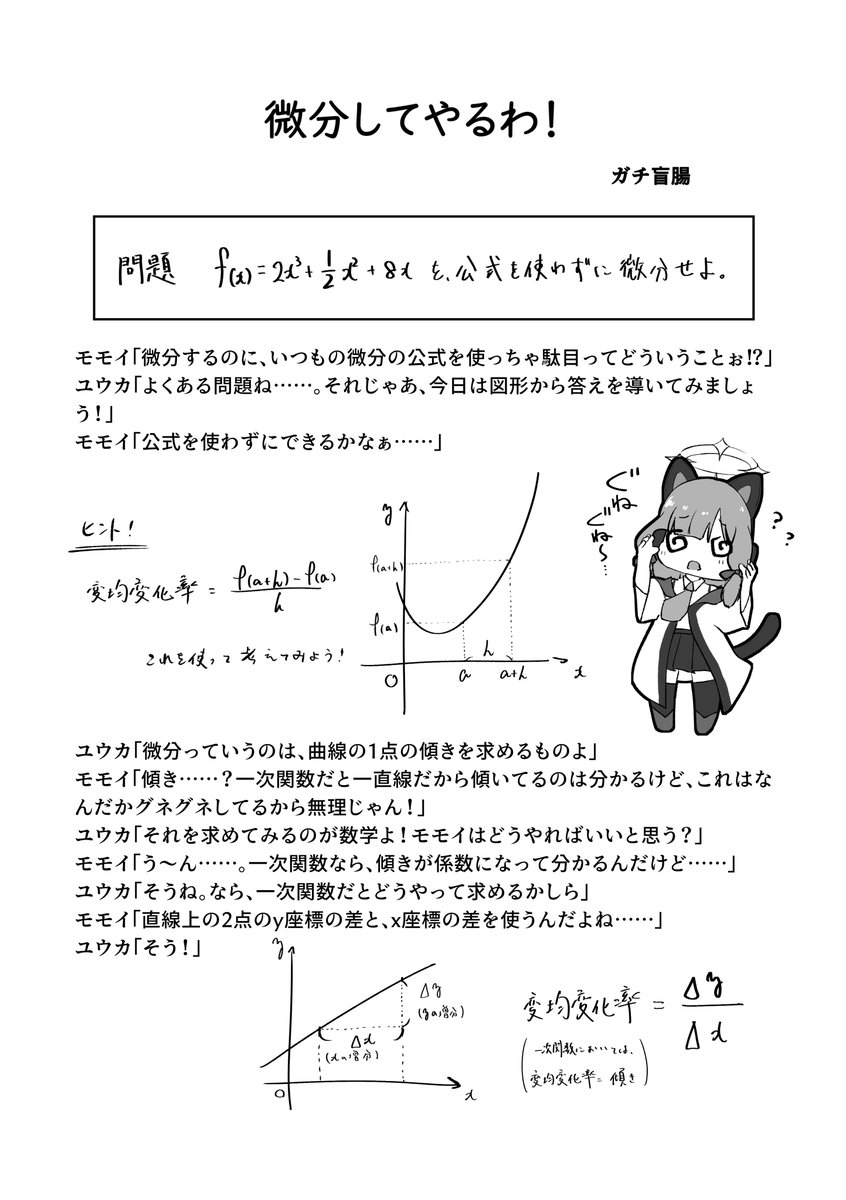 微分してやるわ！
ガチ盲腸
問題 f(x)=2x³+1/2x²+8x を、公式を使わずに微分せよ。
モモイ「微分するのに、いつもの微分の公式を使っちゃ駄目ってどういうことぉ!?」
ユウカ「よくある問題ね……。それじゃあ、今日は図形から答えを導いてみましょ
う！」
モモイ「公式を使わずにできるかなぁ……」
ぐね
ぐね〜…
??
ヒント!
変均変化率 = f(a+h)-f(a)/h
これを使って考えてみよう!
y
f(a+h)
f(a)
h
O a a+h x
ユウカ「微分っていうのは、曲線の1点の傾きを求めるものよ」
モモイ「傾き……？一次関数だと一直線だから傾いてるのは分かるけど、これはな
んだかグネグネしてるから無理じゃん！」
ユウカ「それを求めてみるのが数学よ！モモイはどうやればいいと思う？」
モモイ「う〜ん……。一次関数なら、傾きが係数になって分かるんだけど……」
ユウカ「そうね。なら、一次関数だとどうやって求めるかしら」
モモイ「直線上の2点のy座標の差と、x座標の差を使うんだよね……」
ユウカ「そう！」
y
Δy
(yの増分)
Δx
(xの増分)
O x
変均変化率 = Δy/Δx
(一次関数においては、
変均変化率=傾き)